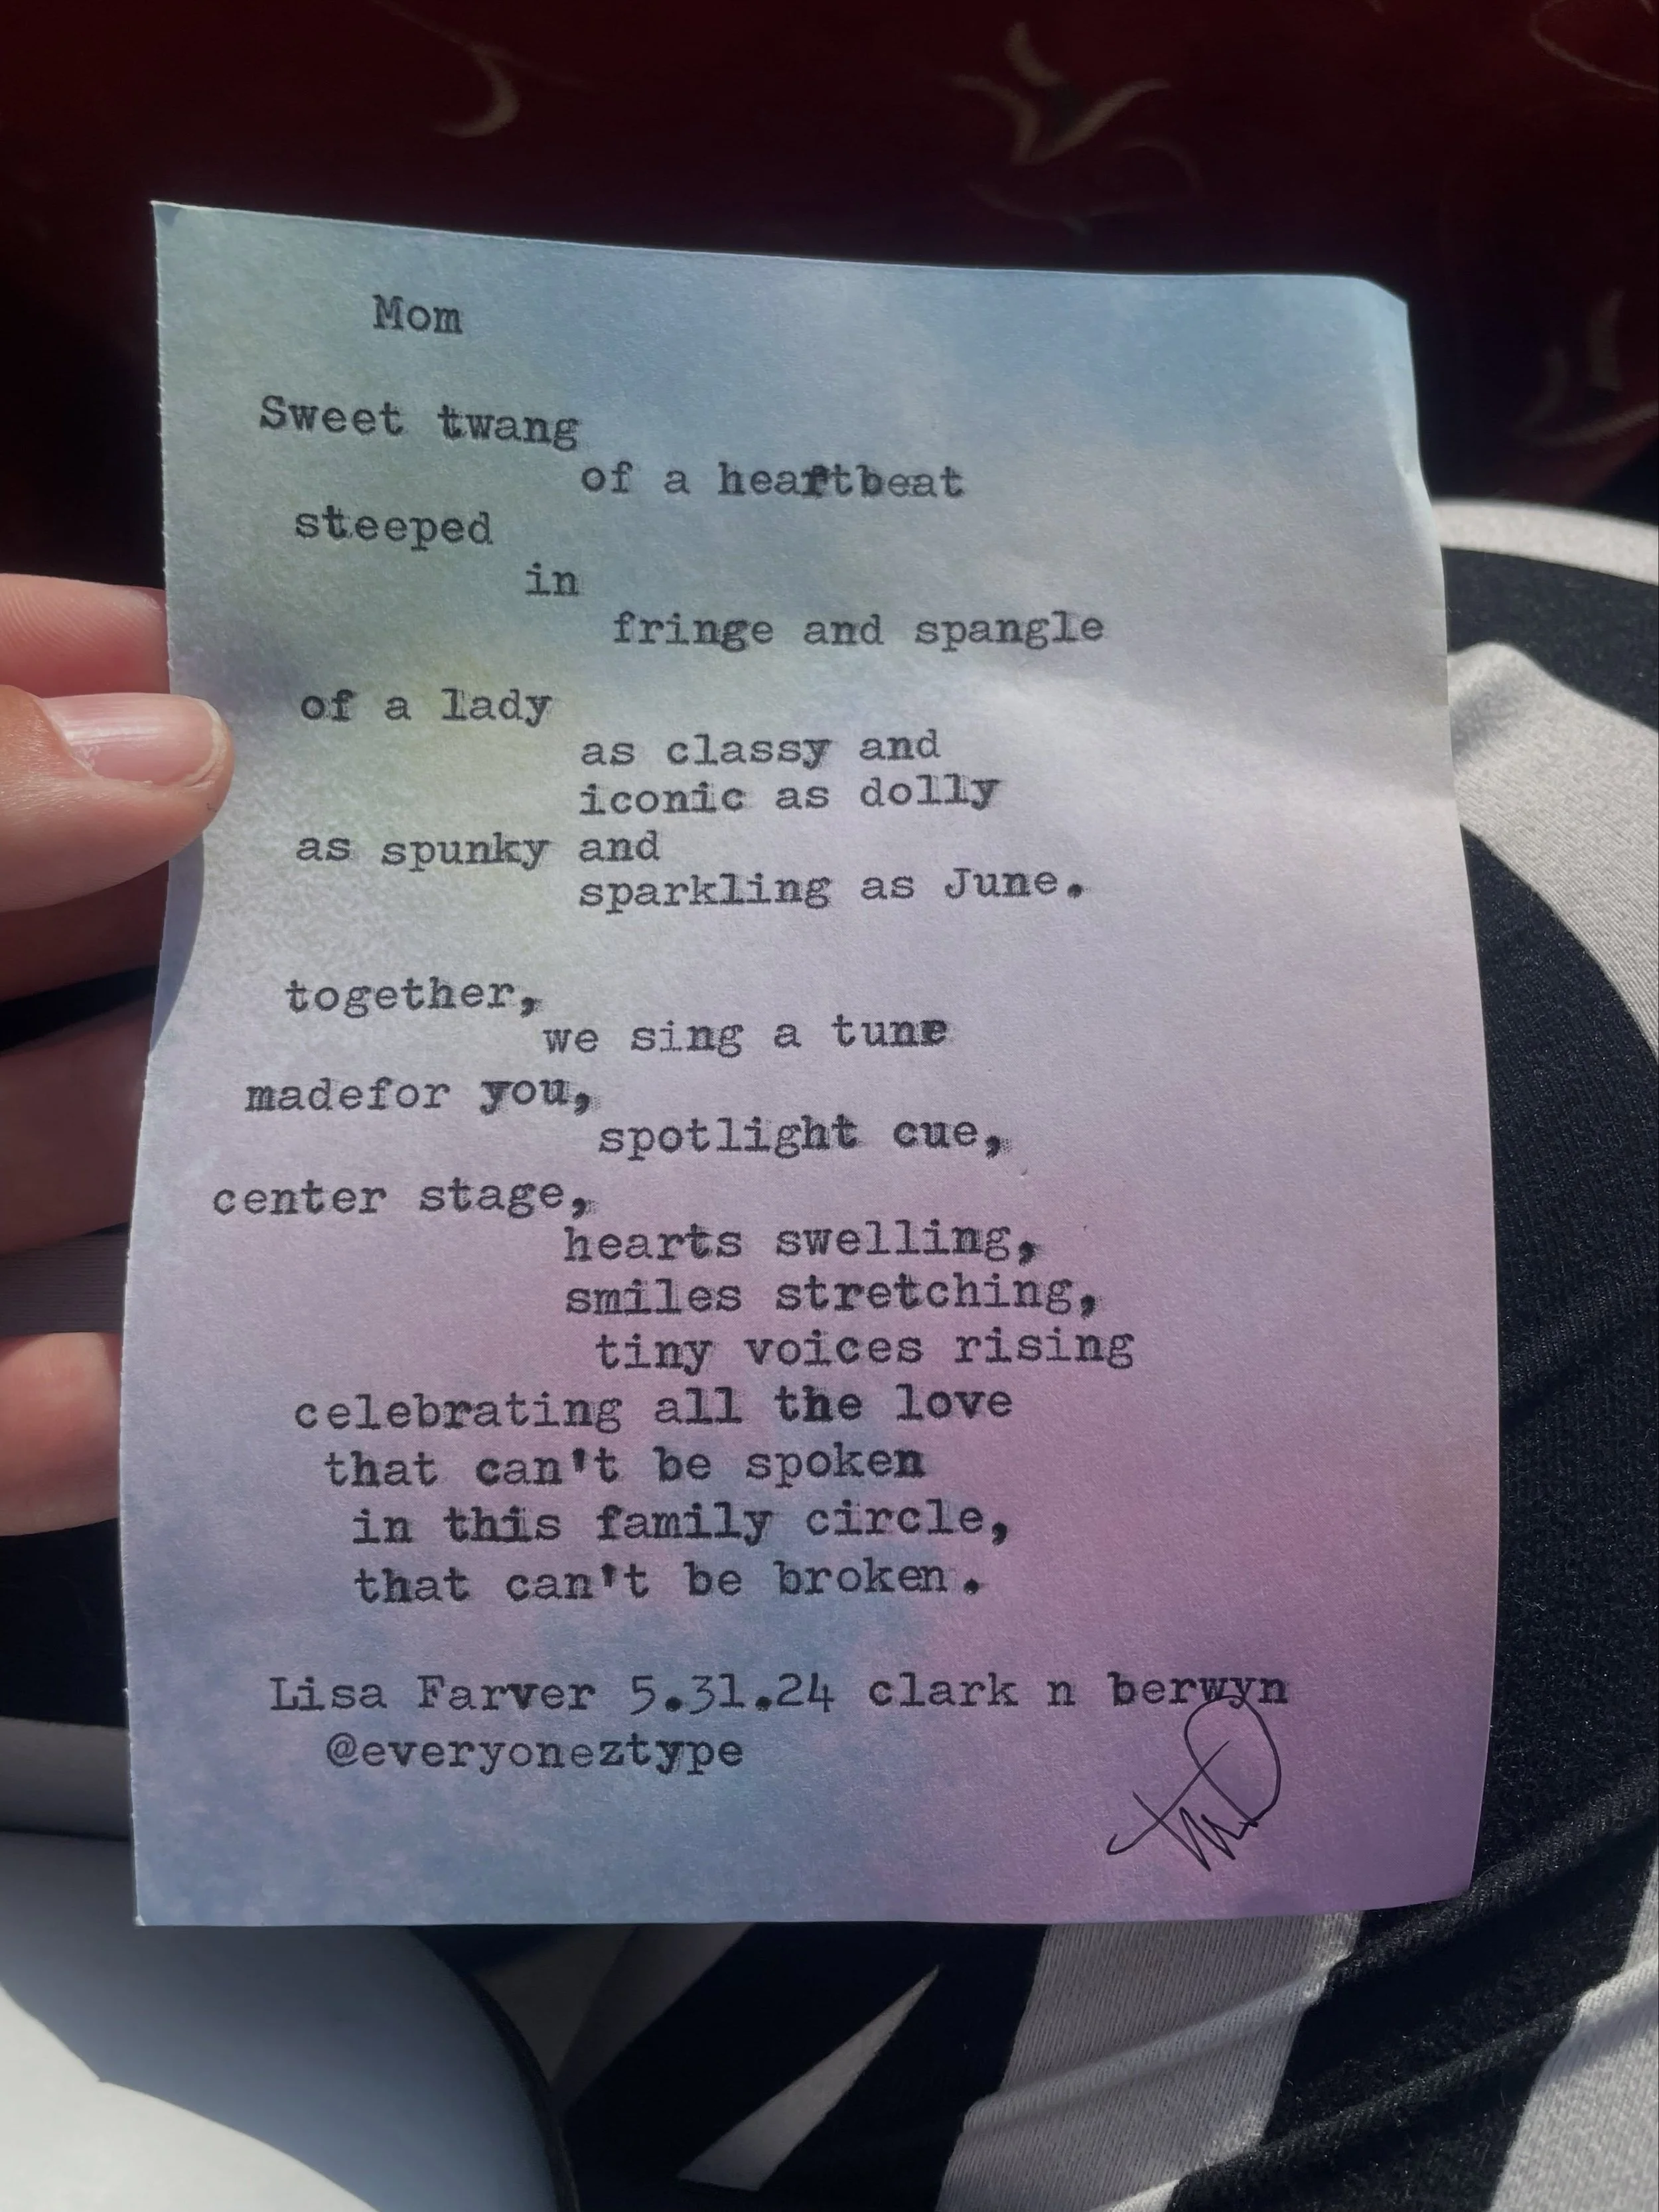 Mom
Sweet twang
of a heartbeat
steeped
in
fringe and spangle
of a lady
as classy and
iconic as dolly
as spunky and
sparkling as June.
together,
we sing a tune
madefor you,
spotlight cue,
center stage,
hearts swelling,
smiles stretching,
tiny voices rising
celebrating all the love
that can't be spoken
in this family circle,
that can't be broken.
Lisa Farver 5.31.24 clark n berwyn
@everyoneztype